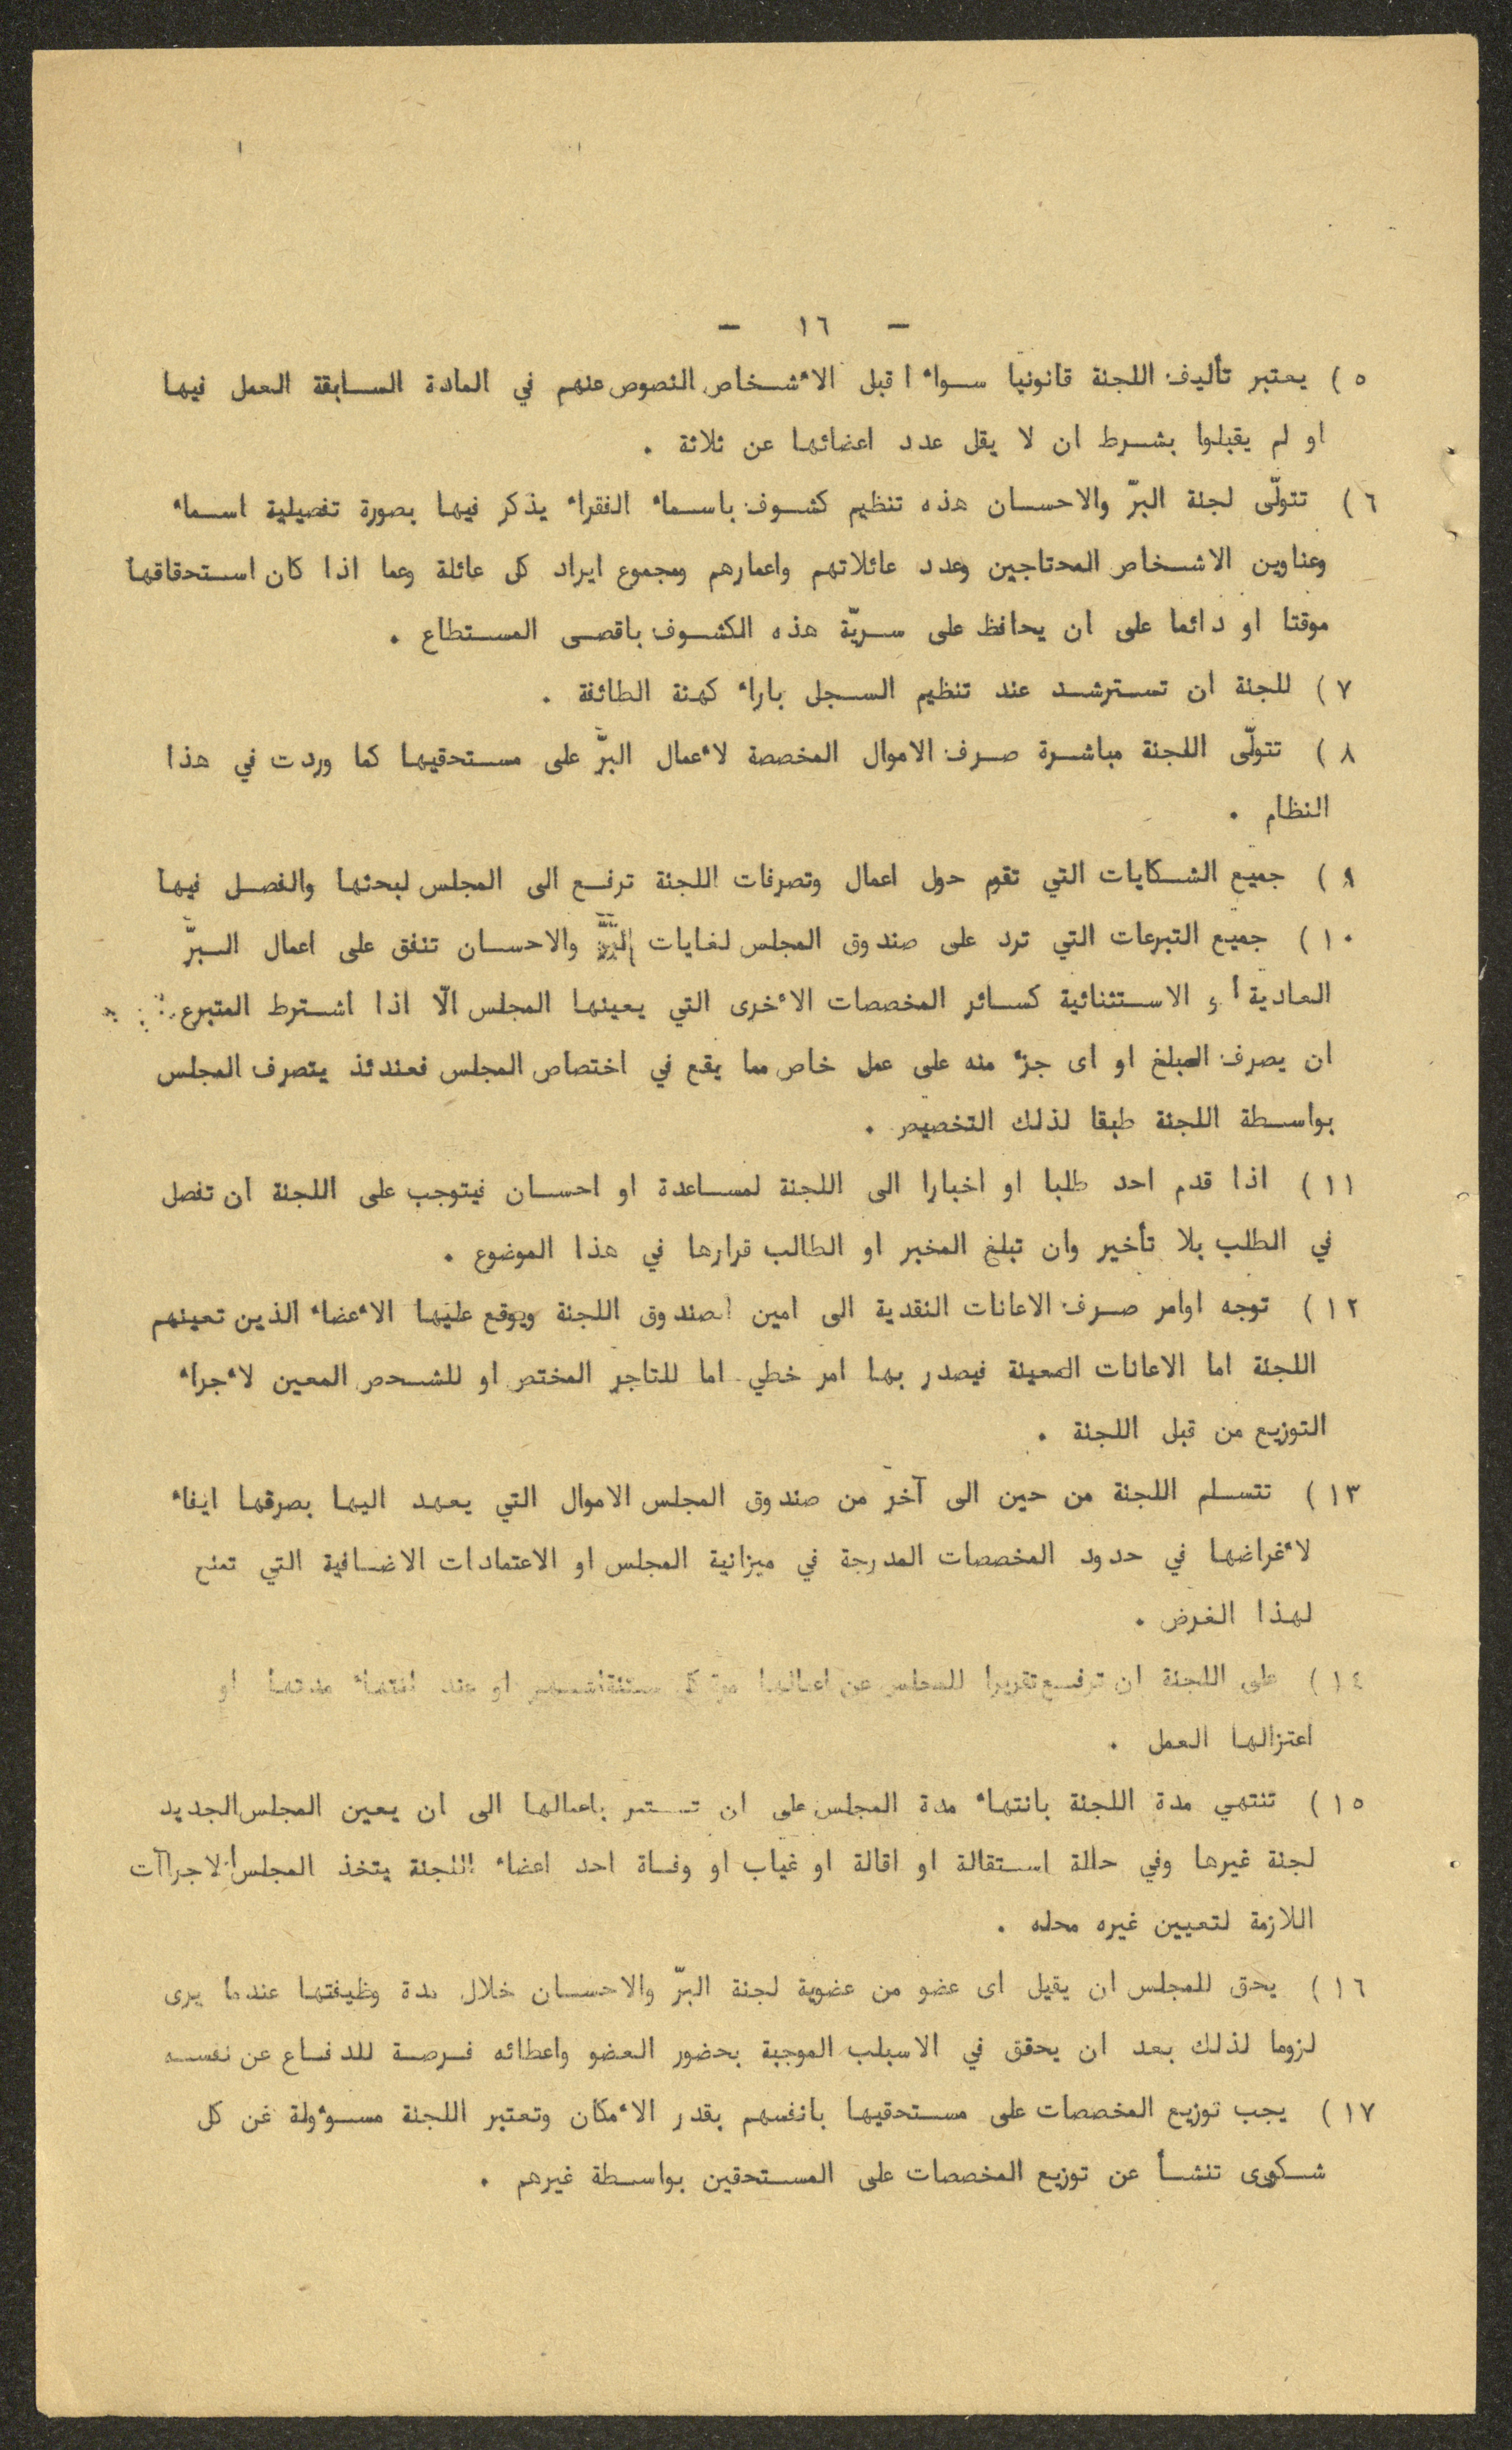 - ١٦ -
٥ ) يعتبر تأليف اللجنة قانونيا سواء ا قبل الأشخاص النصوص عنهم في المادة السابقة العمل فيها
او لم يقبلوا بشرط ان لا يقل عدد اعضائها عن ثلاثة .
٦ ) تتولّى لجنة البرّ والاحسان هذه تنظيم كشوف باسماء الفقراء يذكر فيها بصورة تفصيلية اسماء
وعناوين الاشخاص المحتاجين وعدد عائلاتهم واعمارهم ومجموع ايراد كل عائلة وعما اذا كان استحقاقها
موقتا او دائما على ان يحافظ على سريّة هذه الكشوف باقصى المستطاع .
٧ ) للجنة ان تسترشد عند تنظيم السجل باراء كهنة الطائفة .
٨ ) تتولّى اللجنة مباشرة صرف الاموال المخصصة لأعمال البرّ على مستحقيها كما وردت في هذا
النظام .
٩ ) جميع الشكايات التي تقوم حول اعمال وتصرفات اللجنة ترفع الى المجلس لبحثها والفصل فيها
١٠ ) جميع التبرعات التي ترد على صندوق المجلس لغايات البرّ والاحسان تنفق على اعمال البرّ
العادية أو الاستثنائية كسائر المخصصات الأخرى التي يعينها المجلس الّا اذا اشترط المتبرع
ان يصرف المبلغ او اى جزء منه على عمل خاص مما يقع في اختصاص المجلس فعندئذ يتصرف المجلس
بواسطة اللجنة طبقا لذلك التخصيص .
١١ ) اذا قدم احد طلبا او اخبارا الى اللجنة لمساعدة او احسان فيتوجب على اللجنة ان تفصل
في الطلب بلا تأخير وان تبلغ المخبر او الطالب قرارها في هذا الموضوع .
١٢ ) توجه اوامر صرف الاعانات النقدية الى امين صندوق اللجنة ويوقع عليها الأعضاء الذين تعينهم
اللجنة اما الاعانات المعينة فيصدر بها امر خطي اما للتاجر المختص او للشخص المعين لأجراء
التوزيع من قبل اللجنة .
١٣ ) تتسلم اللجنة من حين الى آخر من صندوق المجلس الاموال التي يعهد اليها بصرفها ايفاء
لأغراضها في حدود المخصصات المدرجة في ميزانية المجلس او الاعتمادات الاضافية التي تمنح
لهذا الغرض .
١٤ ) على اللجنة ان ترفع تقريرا للمجلس عن اعمالها مرة كل ستة اشهر او عند انتهاء مدتها او
اعتزالها العمل .
١٥ ) تنتهي مدة اللجنة بانتهاء مدة المجلس على ان تستمر باعمالها الى ان يعين المجلس الجديد
لجنة غيرها وفي حالة استقالة او اقالة او غياب او وفاة احد اعضاء اللجنة يتخذ المجلس الاجراآت
اللازمة لتعيين غيره محله .
١٦ ) يحق للمجلس ان يقيل اى عضو من عضوية لجنة البرّ والاحسان خلال مدة وظيفتها عندما يرى
لزوما لذلك بعد ان يحقق في الاسبلب الموجبة بحضور العضو واعطائه فرصة للدفاع عن نفسه
١٧ ) يجب توزيع المخصصات على مستحقيها بانفسهم بقدر الأمكان وتعتبر اللجنة مسؤولة عن كل
شكوى تنشأ عن توزيع المخصصات على المستحقين بواسطة غيرهم .